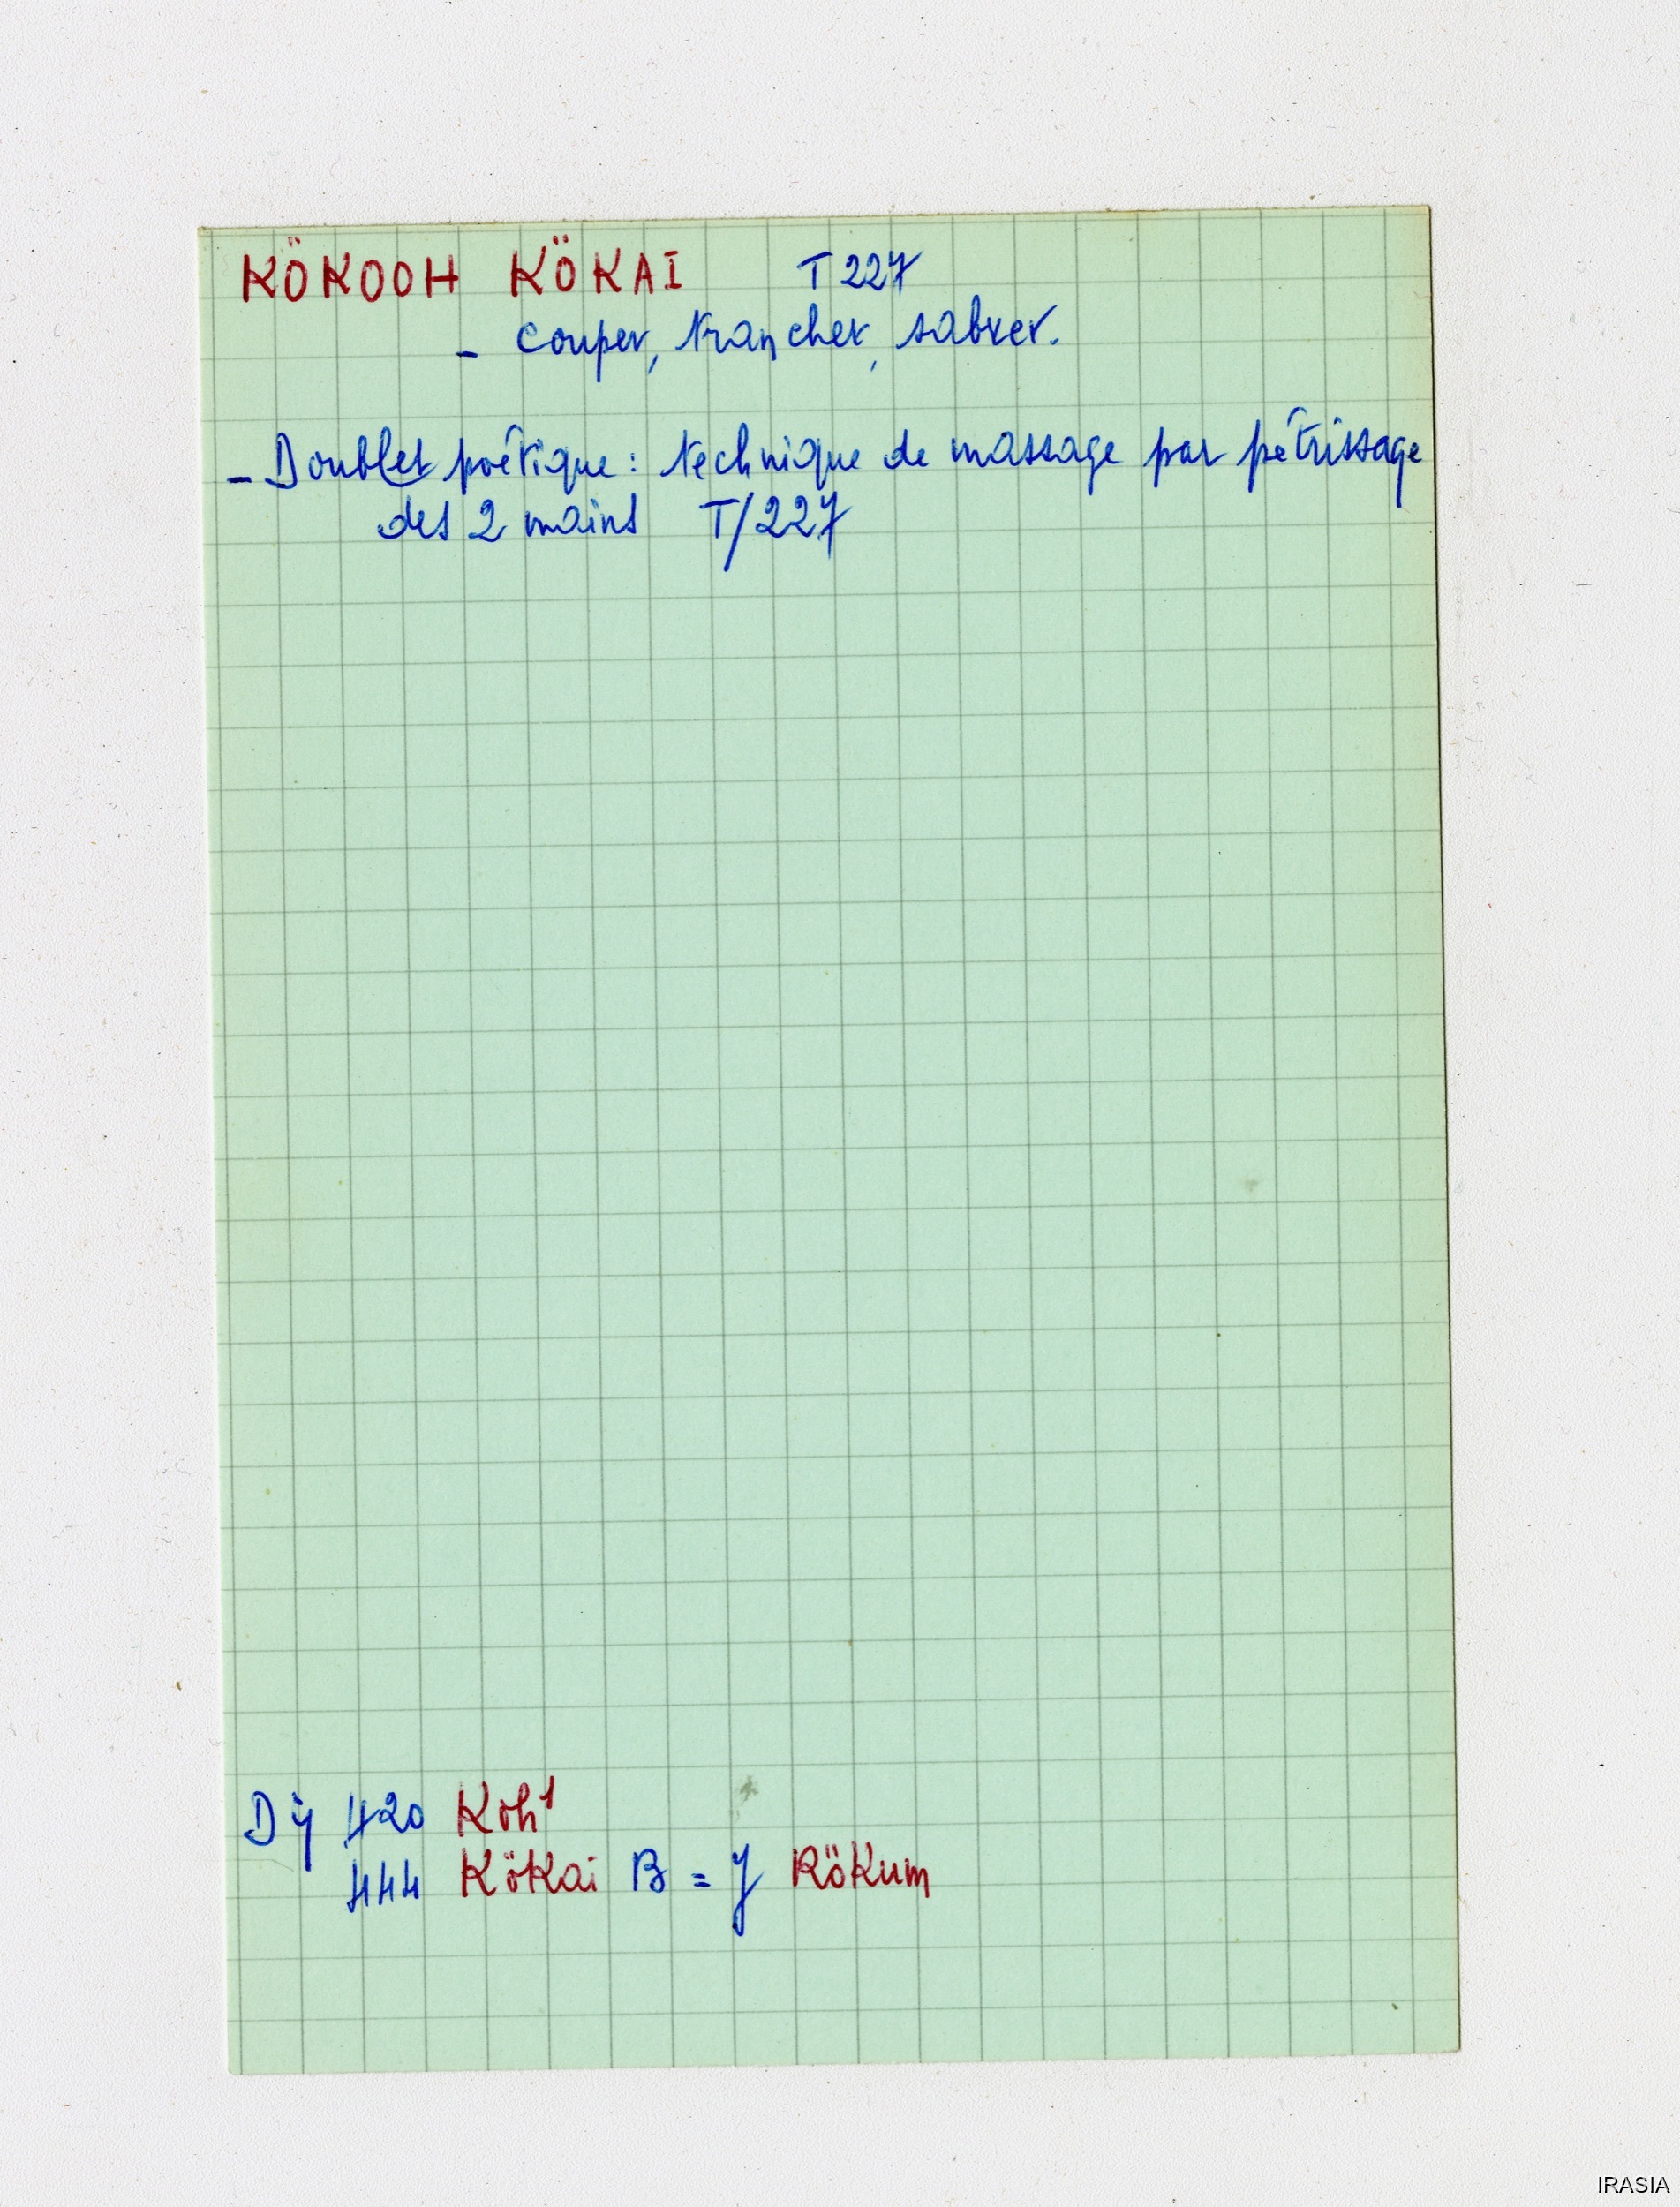 KÖKOOH KÖKAI T 227
- couper, trancher, sabrer.
- Doublet poétique : technique de massage par pétrissage
des 2 mains T/227
Dÿ 420 Koh¹
444 Kökai B = J Rökum
IRASIA